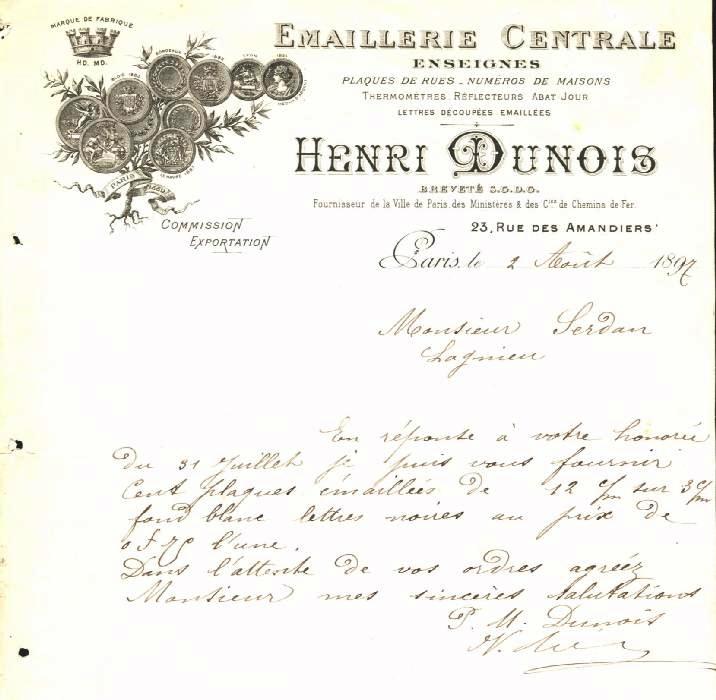 MARQUE DE FABRIQUE
HD. MD.
PARIS
COMMISSION
EXPORTATION
EMAILLERIE CENTRALE
ENSEIGNES
PLAQUES DE RUES _ NUMEROS DE MAISONS
THERMOMÈTRES RÉFLECTEURS ABAT JOUR
LETTRES DÉCOUPÉES EMAILLÉES
HENRI DUNOIS
BREVETÉ S.G.D.G.
Fournisseur de la Ville de Paris, des Ministères & des Cies de Chemins de Fer.
23, RUE DES AMANDIERS
Paris, le 2 Août 1897
Monsieur Serdan
Lagnieu
En réponse à votre honorée
du 31 Juillet je puis vous fournir
Cent plaques émaillées de 12 c/m sur 3 c/m
fond blanc lettres noires au prix de
0f75 l'une.
Dans l'attente de vos ordres agréez
Monsieur mes sincères salutations
P. H. Dunois